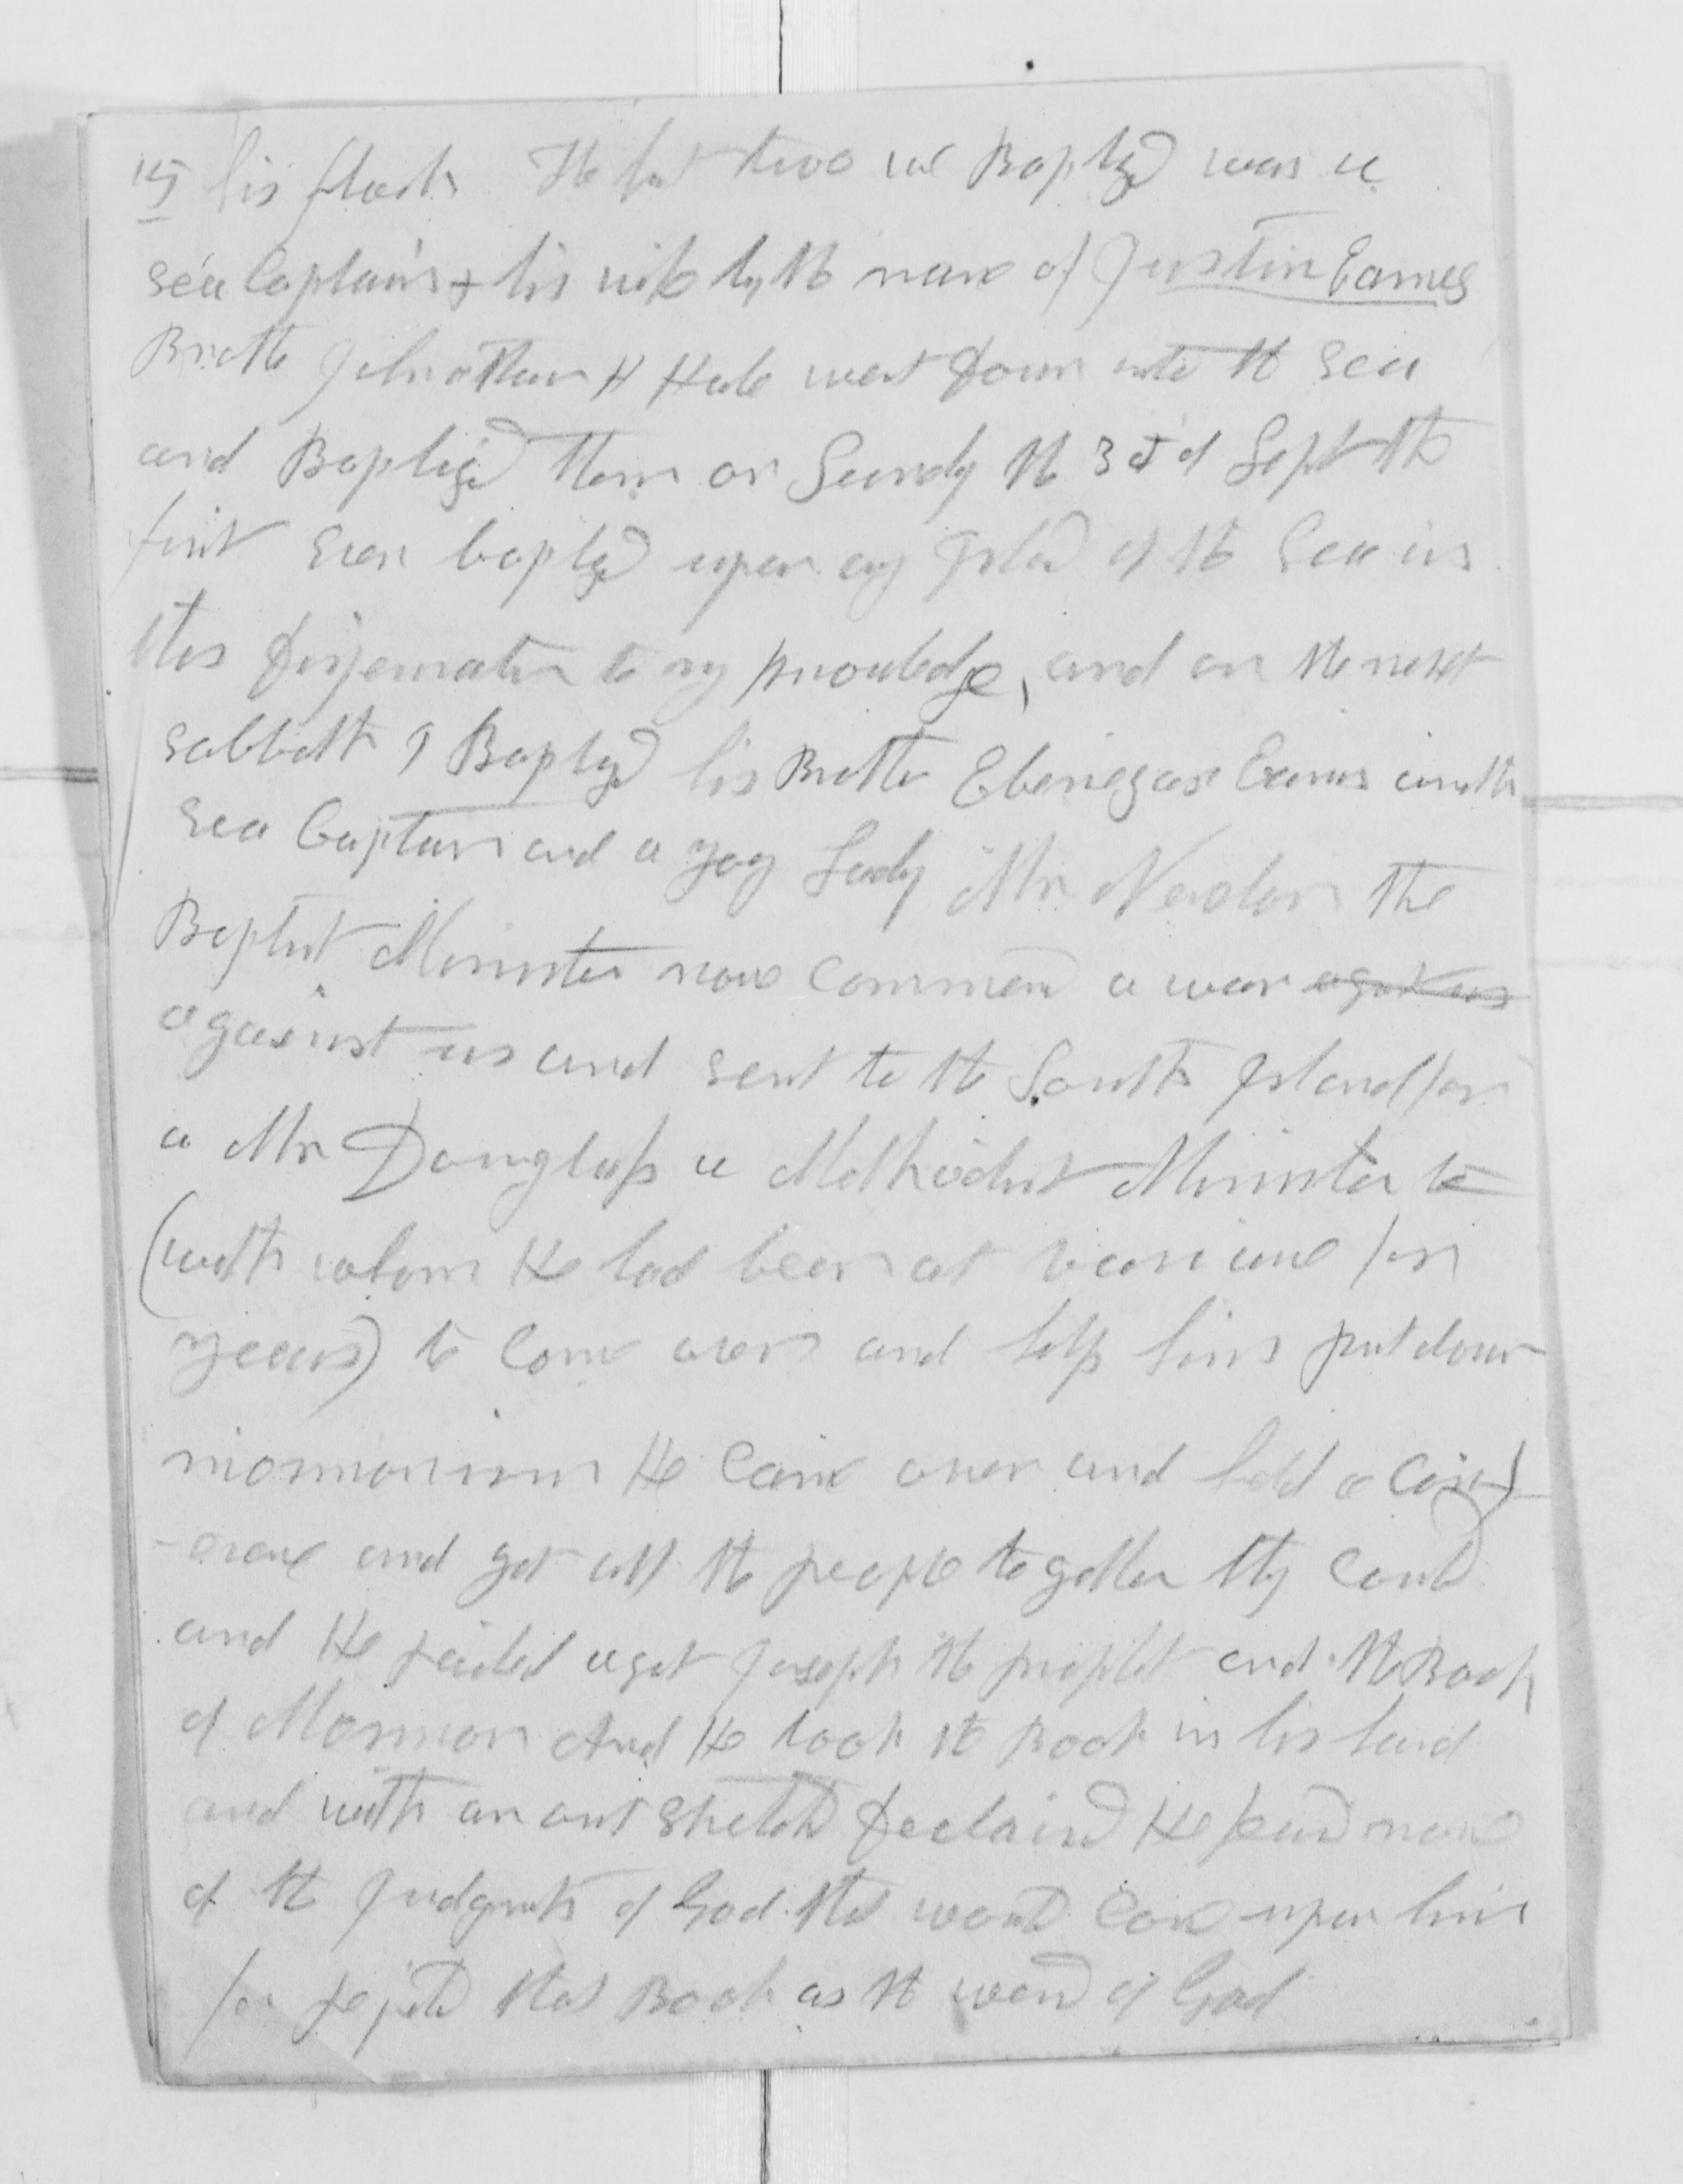 15 his flock The first two we Baptized was a
sea Captain & his wife by the name of Justin Eames
Brother Johnathan H Hale went down into the Sea
and Baptized them on Sundy the 3d of Sept the
first ever baptzd upon any Island of the Sea in
this dispensation to my knowledge, and on the next
sabbath I Baptzd his Brother Ebenezar Eames another
sea Captain and a yong Lady Mr Newton the
Baptist Minister now commend a war agast us
against us and sent to the South Island for
a Mr Douglass a Methodist Minister to
(with whom He had been at variance for
years) to come over and help him put down
mormonism He came over and held a Conf-
-erance and got all the people together they could
and He railed agst Joseph the prophet and the Book
of Mormon And He took the Book in his hand
and with an out stretchd declaird He feard none
of the Judgmts of God that would come upon him
for rejetd that Book as the word of God